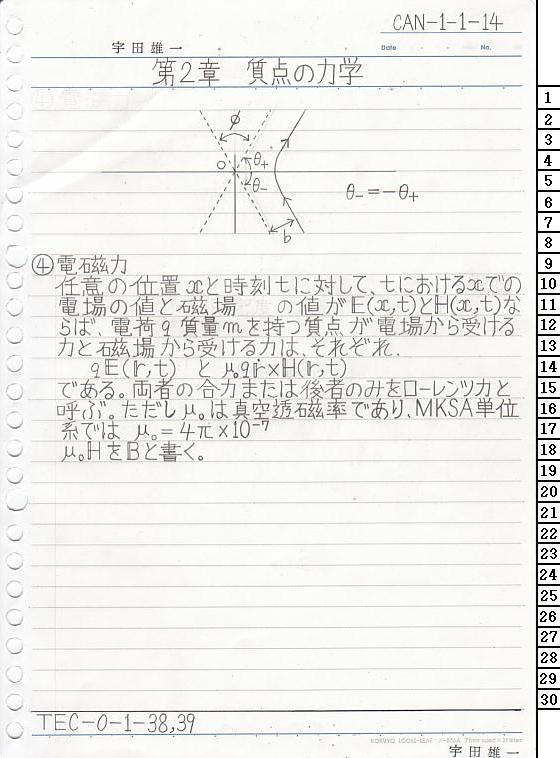 CAN-1-1-14
宇田雄一
Date . . No.
第2章 質点の力学
φ
θ+
0
θ-
θ-=-θ+
b
④電磁力
任意の位置xと時刻tに対して、tにおけるxでの
電場の値と磁場 の値がE(x,t)とH(x,t)な
らば、電荷q質量mを持つ質点が電場から受ける
力と磁場から受ける力は、それぞれ、
qE(r,t) と μ₀qṙ×H(r,t)
である。両者の合力または後者のみをローレンツ力と
呼ぶ。ただしμ₀は真空透磁率であり、MKSA単位
系では μ₀=4π×10⁻⁷
μ₀HをBと書く。
TEC-0-1-38,39
KOKUYO LOOSE-LEAF ノ-836A 7mm ruled×31 lines
宇田雄一
1
2
3
4
5
6
7
8
9
10
11
12
13
14
15
16
17
18
19
20
21
22
23
24
25
26
27
28
29
30